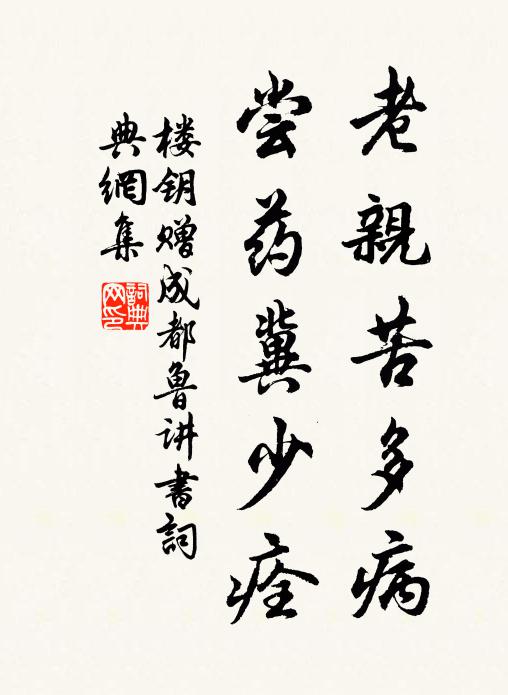 老親苦多病
尝药冀少痊
楼钥赠成都鲁讲书詞
典網集
詞典网印